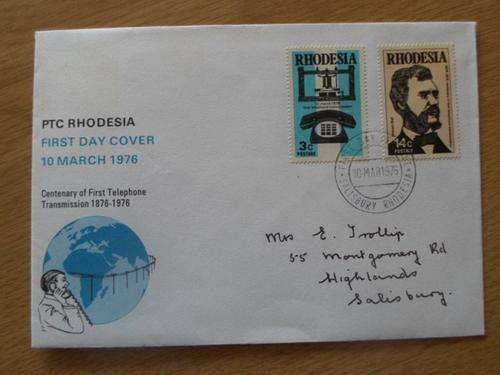 PTC RHODESIA
FIRST DAY COVER
10 MARCH 1976
Centenary of First Telephone
Transmission 1876-1976
RHODESIA
3c
POSTAGE
RHODESIA
14c
POSTAGE
10 MAR 1976
SALISBURY RHODESIA
Mrs E. Trollip
55 Montgomery Rd
Highlands
Salisbury.